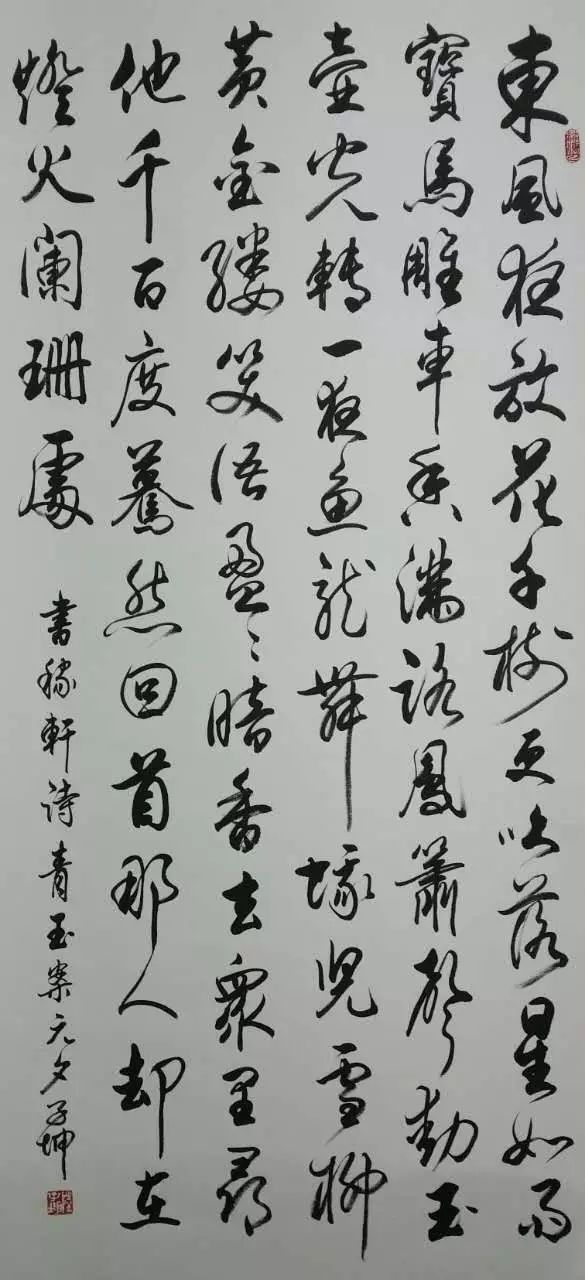 東風夜放花千樹更吹落星如雨
寶馬雕車香滿路鳳簫聲動玉
壺光轉一夜魚龍舞蛾兒雪柳
黃金縷笑語盈〻暗香去衆里尋
他千百度驀然回首那人却在
燈火闌珊處
書稼軒詩青玉案元夕子坤